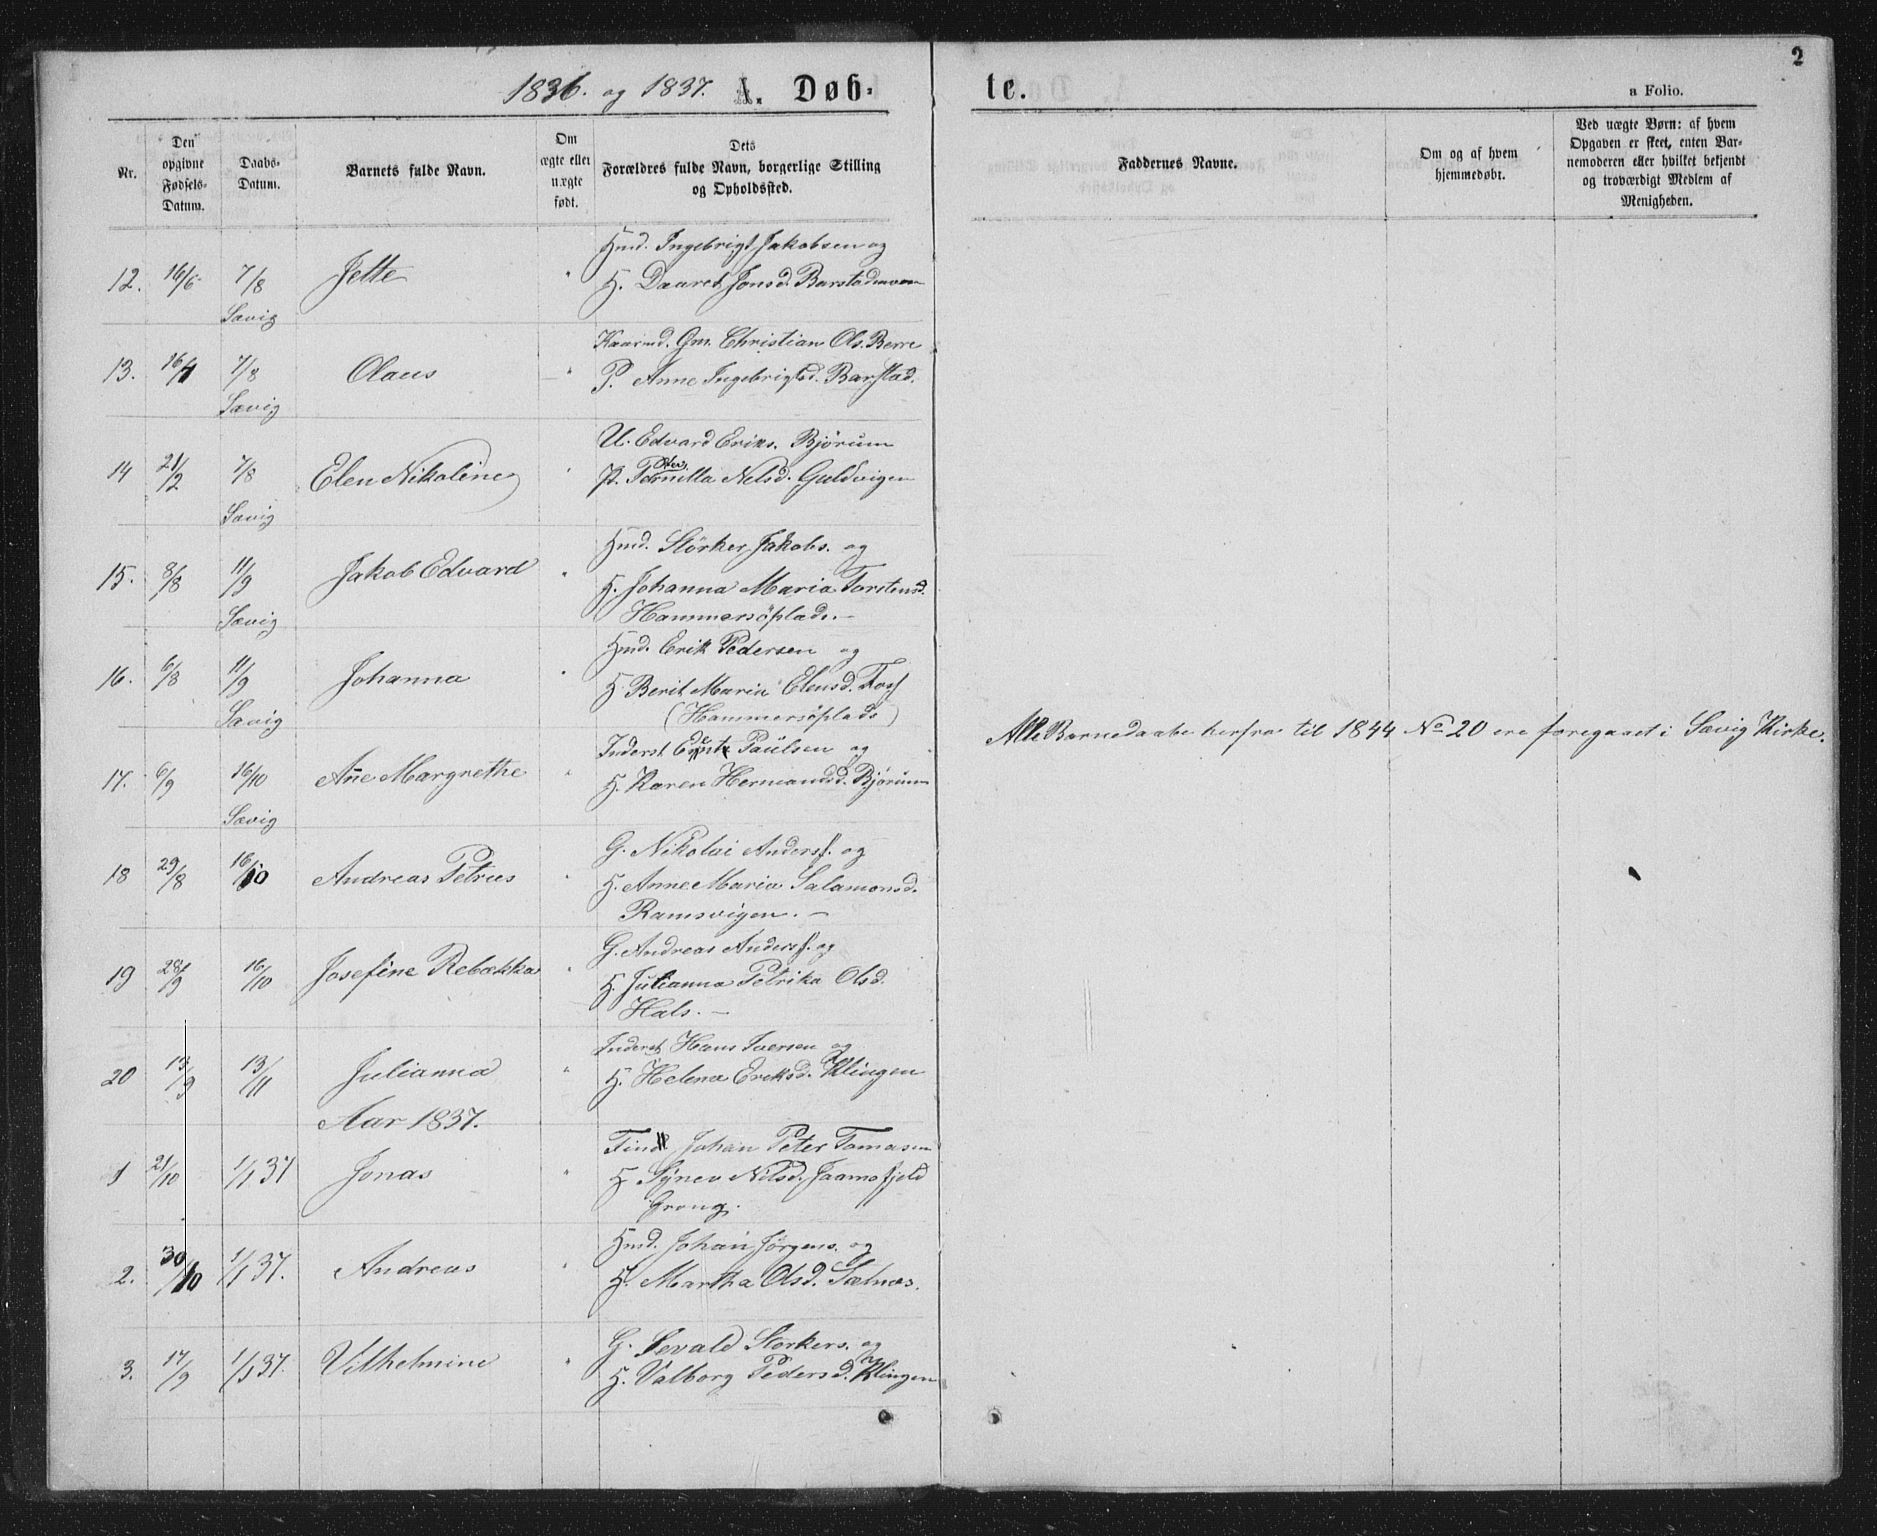 2
1836. og 1837. A. Døb-
te.
a Folio.
Nr.
Den
opgivne
Fødsels-
Datum.
Daabs-
Datum.
Barnets fulde Navn.
Om
ægte eller
uægte
født.
Dets
Forældres fulde Navn, borgerlige Stilling
og Opholdssted.
Faddernes Navne.
Om og af hvem
hjemmedøbt.
Ved uægte Børn: af hvem
Opgaven er skeet, enten Bar-
nemoderen eller hvilket bekjendt
og troværdigt Medlem af
Menigheden.
Hmd. Ingebrigt Jakobsen og
12. 16/6 7/8 Jette " H. Daaret Jonsd. Barstadmoen
Sævig
Gm. Christian Ols. Berre
13. 16/4 7/8 Olaus " P. Anne Ingebrigtsd. Barstad.
Sævig
U. Edvard Eriks. Bjørum
14 21/2 7/8 Elen Nikoline " P. Nelsd. Guldvigen
Sævig
Hmd. Størker Jakobs. og
15. 8/8 11/9 Jakob Edvard " H. Johanna Maria Torstensd.
Sævig Hammersöplads. –
Hmd. Erik Pedersen og
16. 6/8 11/9 Johanna " H Berit Maria Elensd. Foss
Sævig (Hammersöplads)
Inderst Paulsen og
17. 6/9 16/10 Ane Margrethe " H. Karen Hermandsd. Bjørum
Sævig
G. Nikolai Anderss. og
18 29/8 16/10 Andreas Petrus " H. Anne Maria Salamonsd.
Ramsvigen. –
G. Andreas Anderss. og
19 28/9 16/10 Josefine Rebekka " H. Julianna Petrika Olsd.
Hals. –
Inderst Hans Iversen og
20 13/9 13/11 Julianna " H. Helena Eriksd. Klingen
Aar 1837.
Find Johan Peter Tomasen
1 21/10 1/1 37 Jonas " H Synev Nilsd. Jaamafjeld
Grong.
Hmd. Johan Jørgens. og
2. 30/10 1/1 37. Andreas " H. Martha Olsd. Sælnæs.
G. Sevald Storkers. og
3. 17/9 1/1 37. Vilhelmine " H. Valborg Pedersd. Klingen
Alle Barnedaabe herfra til 1844 No 20 ere foregaaet i Sævig Kirke.